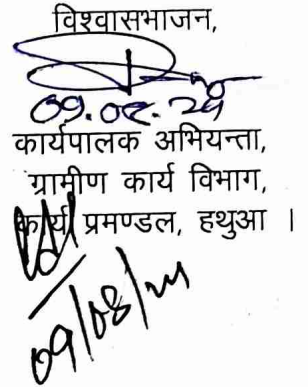 विश्वासभाजन,
09.08.24
कार्यपालक अभियन्ता,
ग्रामीण कार्य विभाग,
कार्य प्रमण्डल, हथुआ ।
09/08/24